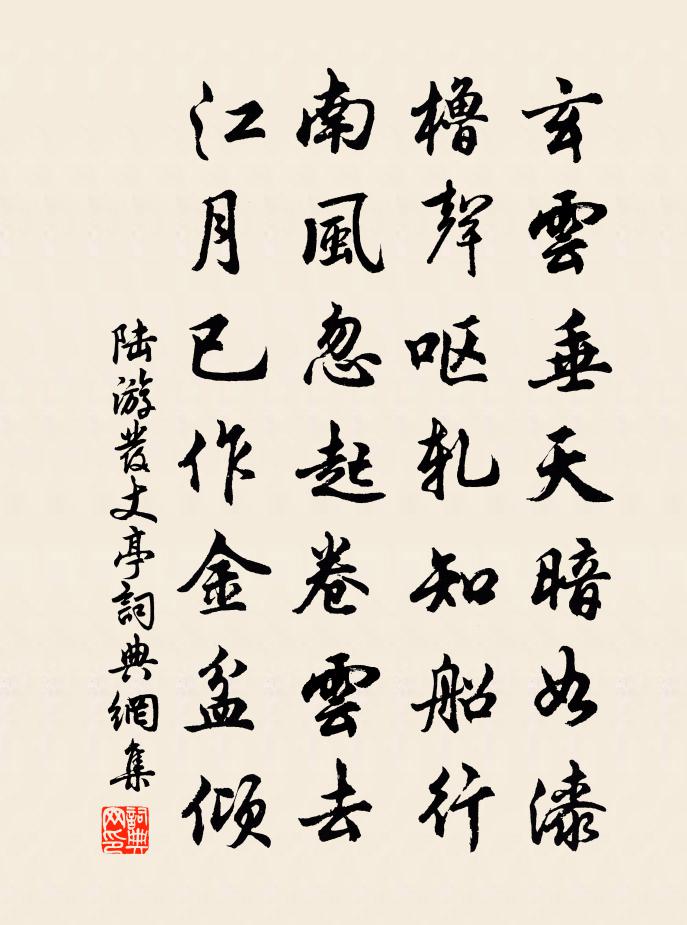 玄雲垂天暗如漆
櫓聲呕軋知船行
南風忽起卷雲去
江月已作金盆傾
陆游發丈亭詞典網集
詞典網印